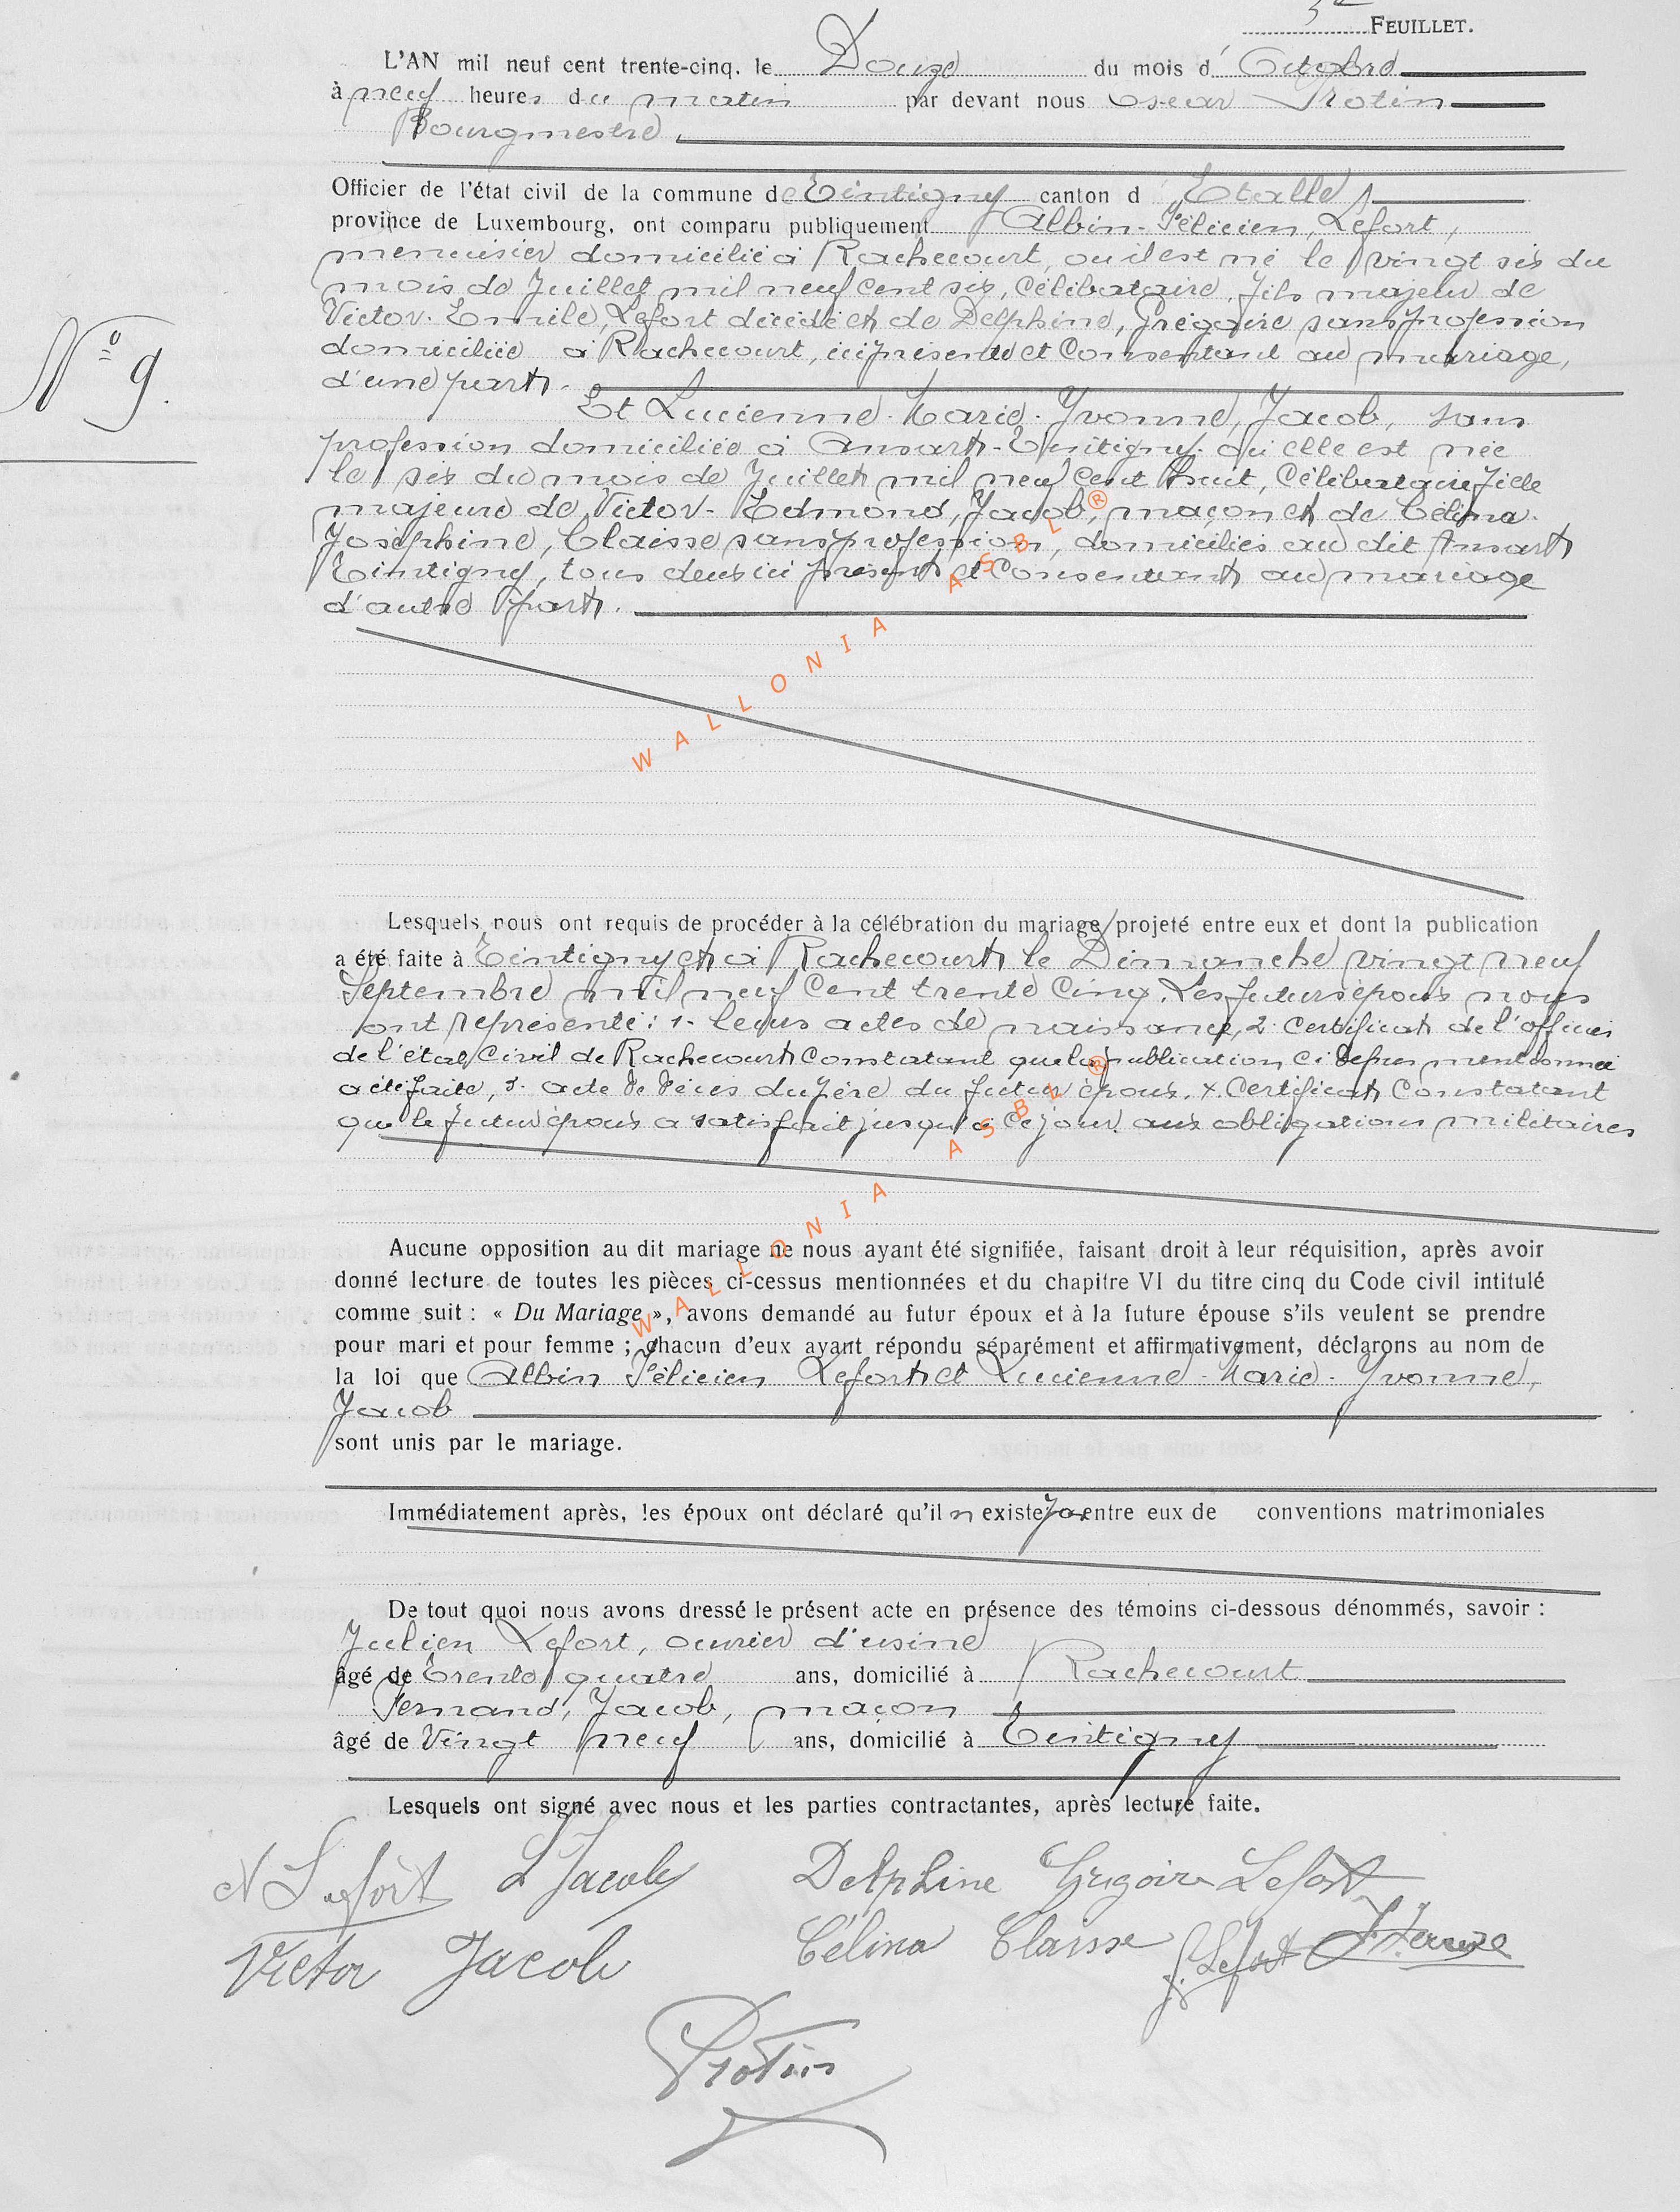 FEUILLET.
L'AN mil neuf cent trente-cinq, le Douze du mois d' Octobre
à neuf heures du matin par devant nous Oscar Protin
Bourgmestre
Officier de l'état civil de la commune de Tintigny canton d' Etalle
province de Luxembourg, ont comparu publiquement Albin-Félicien, Lefort,
menuisier domicilié à Rachecourt, où il est né le vingt six du
mois de Juillet mil neuf cent six, Célibataire, fils majeur de
Victor-Emile, Lefort décédé et de Delphine, Grégoire sans profession
domiciliée à Rachecourt, ici présente et Consentant au mariage,
d'une part.
N° 9.
Et Lucienne-Marie-Yvonne, Jacob, sans
profession domiciliée à Ansart-Tintigny où elle est née
le six du mois de Juillet mil neuf cent huit, Célibataire fille
majeure de Victor-Edmond, Jacob, maçon et de Célina-
Joséphine, Claisse sans profession, domiciliés au dit Ansart
Tintigny, tous deux ici présents et Consentants au mariage
d'autre part.
WALLONIA ASBL ®
Lesquels nous ont requis de procéder à la célébration du mariage projeté entre eux et dont la publication
a été faite à Tintigny et à Rachecourt le Dimanche vingt neuf
Septembre mil neuf Cent trente Cinq. Les futurs époux nous
ont représenté : 1- leurs actes de naissance, 2 Certificat de l'officier
de l'état Civil de Rachecourt Constatant que la publication ci mentionnée
a été faite, 3- acte de décès du père du futur époux. 4 Certificat Constatant
que le futur époux a satisfait jusqu'à ce jour aux obligations militaires
WALLONIA ASBL ®
Aucune opposition au dit mariage ne nous ayant été signifiée, faisant droit à leur réquisition, après avoir
donné lecture de toutes les pièces ci-cessus mentionnées et du chapitre VI du titre cinq du Code civil intitulé
comme suit : « Du Mariage », avons demandé au futur époux et à la future épouse s'ils veulent se prendre
pour mari et pour femme ; chacun d'eux ayant répondu séparément et affirmativement, déclarons au nom de
la loi que Albin Félicien Lefort et Lucienne-Marie-Yvonne,
Jacob
sont unis par le mariage.
Immédiatement après, les époux ont déclaré qu'il n existe pas entre eux de conventions matrimoniales
De tout quoi nous avons dressé le présent acte en présence des témoins ci-dessous dénommés, savoir :
Julien Lefort, ouvrier d'usine
âgé de Trente quatre ans, domicilié à Rachecourt
Fernand, Jacob, maçon
âgé de Vingt neuf ans, domicilié à Tintigny
Lesquels ont signé avec nous et les parties contractantes, après lecture faite.
A Lefort L Jacob Delphine Grégoire Lefort
Victor Jacob Célina Claisse J. Lefort
Protin